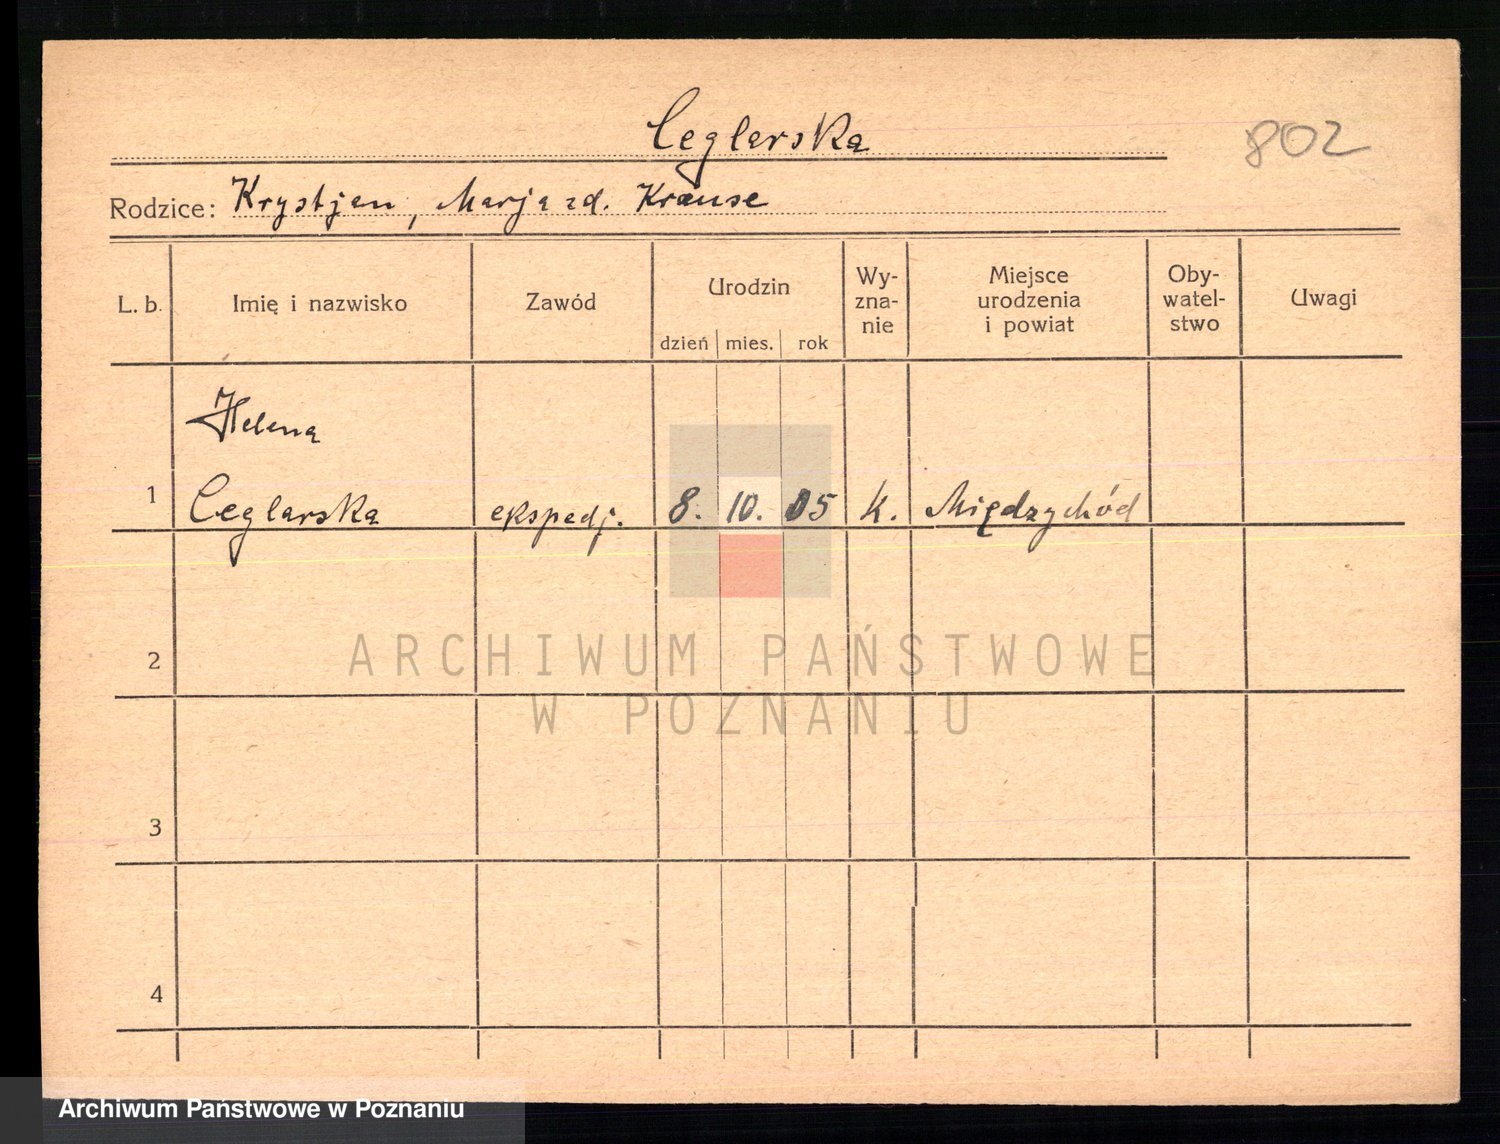 Ceglarska
802
Rodzice: Krystjan, Marja zd. Krause
L. b. Imię i nazwisko Zawód Urodzin dzień mies. rok Wy-zna-nie Miejsce urodzenia i powiat Oby-watel-stwo Uwagi
Helena
1 Ceglarska ekspedj. 8. 10. 05 k. Międzychód
2
ARCHIWUM PAŃSTWOWE
W POZNANIU
3
4
Archiwum Państwowe w Poznaniu